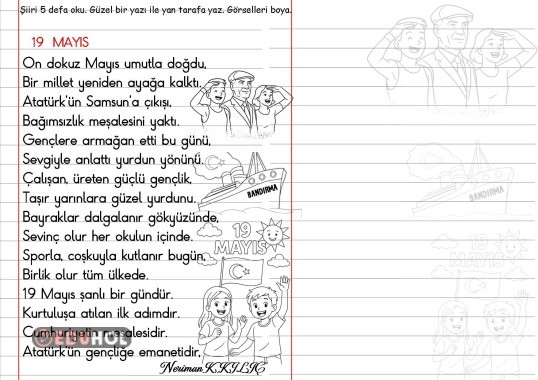 Şiiri 5 defa oku. Güzel bir yazı ile yan tarafa yaz. Görselleri boya.
19 MAYIS
On dokuz Mayıs umutla doğdu,
Bir millet yeniden ayağa kalktı.
Atatürk'ün Samsun'a çıkışı,
Bağımsızlık meşalesini yaktı.
Gençlere armağan etti bu günü,
Sevgiyle anlattı yurdun yönünü.
Çalışan, üreten güçlü gençlik,
Taşır yarınlara güzel yurdunu.
Bayraklar dalgalanır gökyüzünde,
Sevinç olur her okulun içinde.
Sporla, coşkuyla kutlanır bugün,
Birlik olur tüm ülkede.
19 Mayıs şanlı bir gündür.
Kurtuluşa atılan ilk adımdır.
Cumhuriyetin meşalesidir.
Atatürk'ün gençliğe emanetidir.
BANDIRMA
19
MAYIS
EDUHOL
BANDIRMA
19
MAYIS